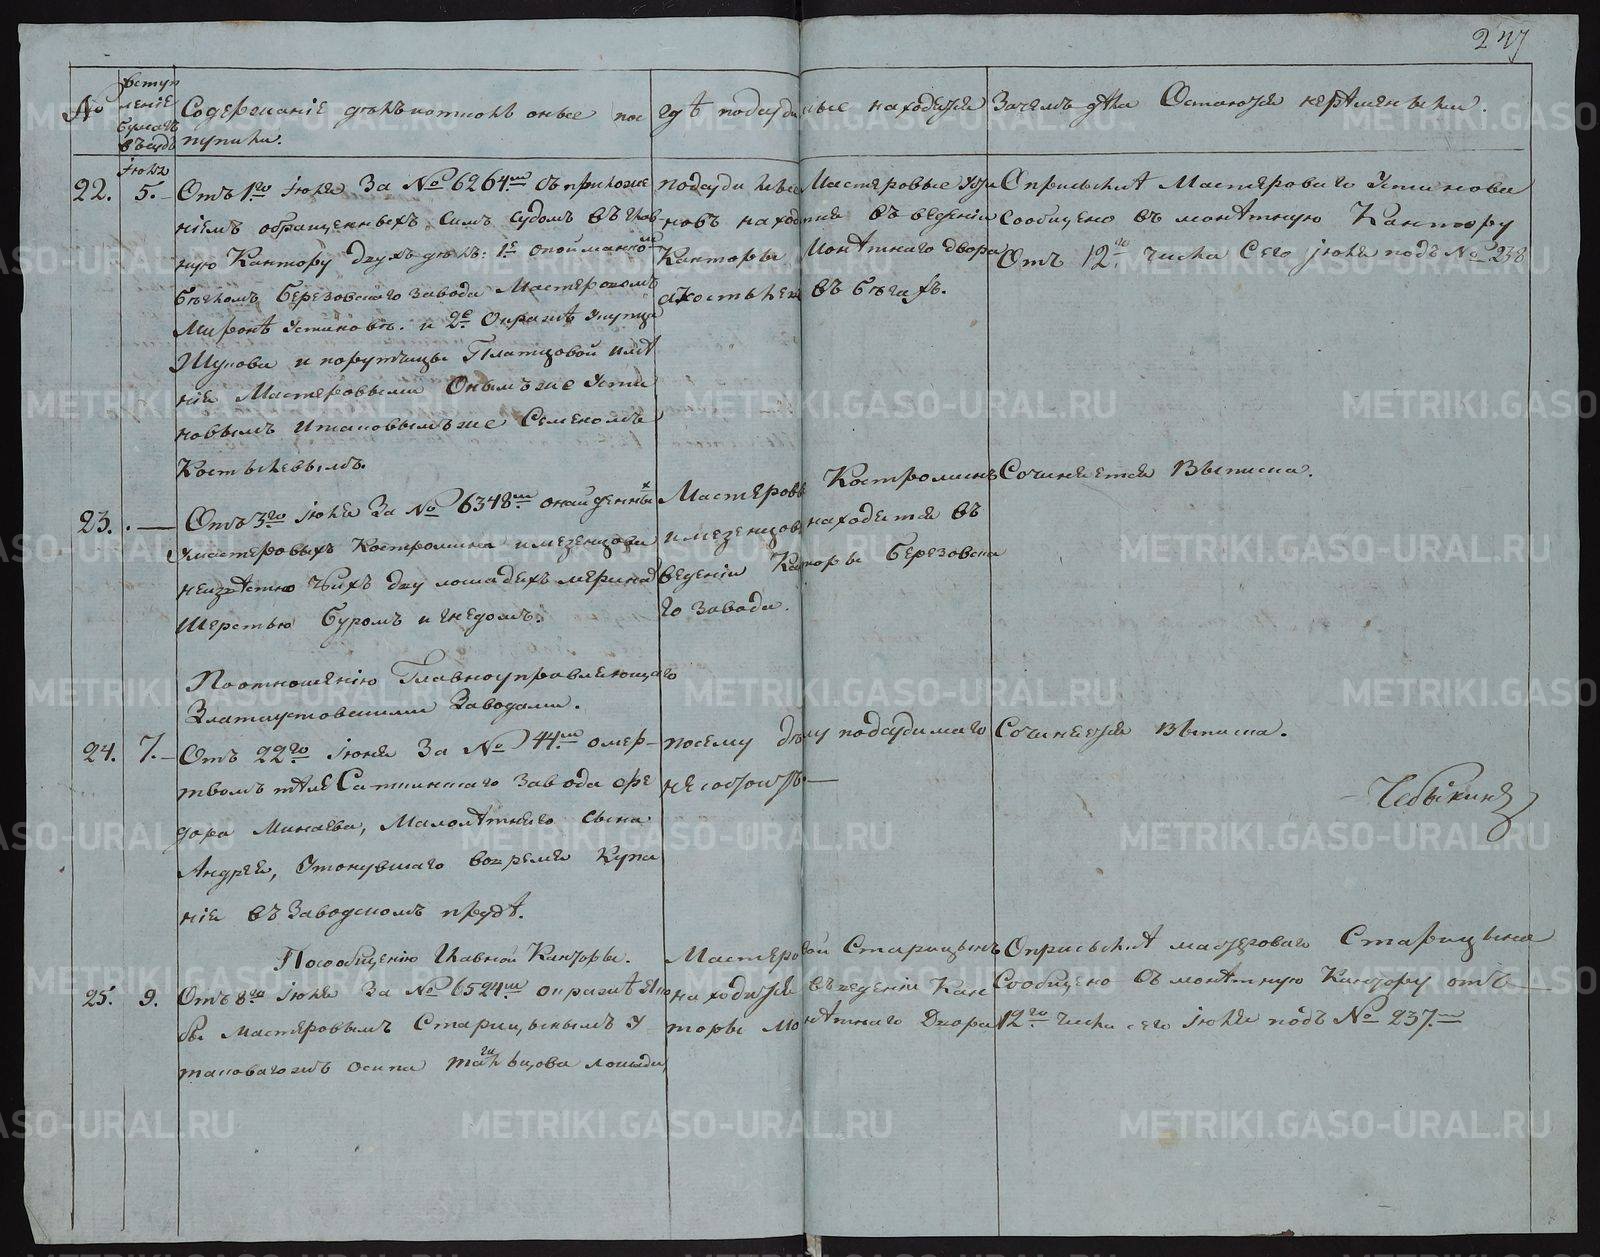 247
№
вступ
ленiе
бумагъ
въ судъ
Содержанiе дѣлъ потомъ оные пос
тупили.
гдѣ подсудимые находятся
Зачемъ дѣла Остаются нерѣшеными.
Iюля
22. 5.
Отъ 1го Iюля За № 6264мъ съ приложе
нiемъ обращенныхъ симъ судомъ въ глав
ную Кантору двухъ дѣлъ: 1е о пойманном
бегломъ Березовскаго завода Мастеровомъ
Миронѣ Устиновѣ. и 2е О кражѣ у купца
Жукова и порутчицы Платцовой имѣ
нiя Мастеровыми Онымъ же Усти
новымъ и таковымъ же Семеномъ
Костылевымъ.
подсудимые Мастеровые Усти
новъ находится въ веденiи
Канторы Монѣтнаго двора
а Костылевъ въ бегахъ.
О присылкѣ Мастероваго Устинова
Сообщено въ монѣтную Кантору
Отъ 12го числа Сего Iюля подъ № 238
23.
Отъ 3го Iюля За № 6348мъ о найденных
у мастеровыхъ Костромина и мезенцова
неизвѣстно чьихъ двухъ лошадехъ меринахъ
Шерстью буромъ и гнедомъ.
Мастеровые Костроминъ
и мезенцовъ находятся въ
веденiи Канторы березовска
го завода.
Сочиняется Выписка.
По отношенiю Главноуправляющаго
Златоустовскими Заводами.
24. 7.
Отъ 22го Iюня За № 44мъ о мер-
твомъ тѣлѣ Саткинскаго Завода Фе
дора Минаева, Малолѣтняго сына
Андрея, Утонувшаго вовремя Купа
нiя въ Заводскомъ прудѣ.
посему дѣлу подсудимаго
не состоитъ.
Сочиняется Выписка.
Чебыкинъ
По сообщенiю Главной Канторы.
25. 9.
Отъ 8го Iюля За № 6524мъ о кражѣ Яко
бы Мастеровымъ Старицынымъ у
таковаго жъ Осипа Тагильцова лошади,
Мастеровой Старицынъ
находится въ веденiи Кан
торы Монѣтнаго Двора
О присылкѣ мастероваго Старицына
Сообщено въ монѣтную Кантору отъ
12го числа сего Iюля подъ № 237мъ